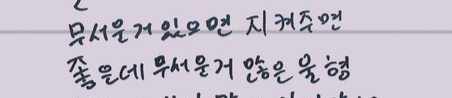 무서운거 있으면 지켜주면
좋은데 무서운거 많은 울 형